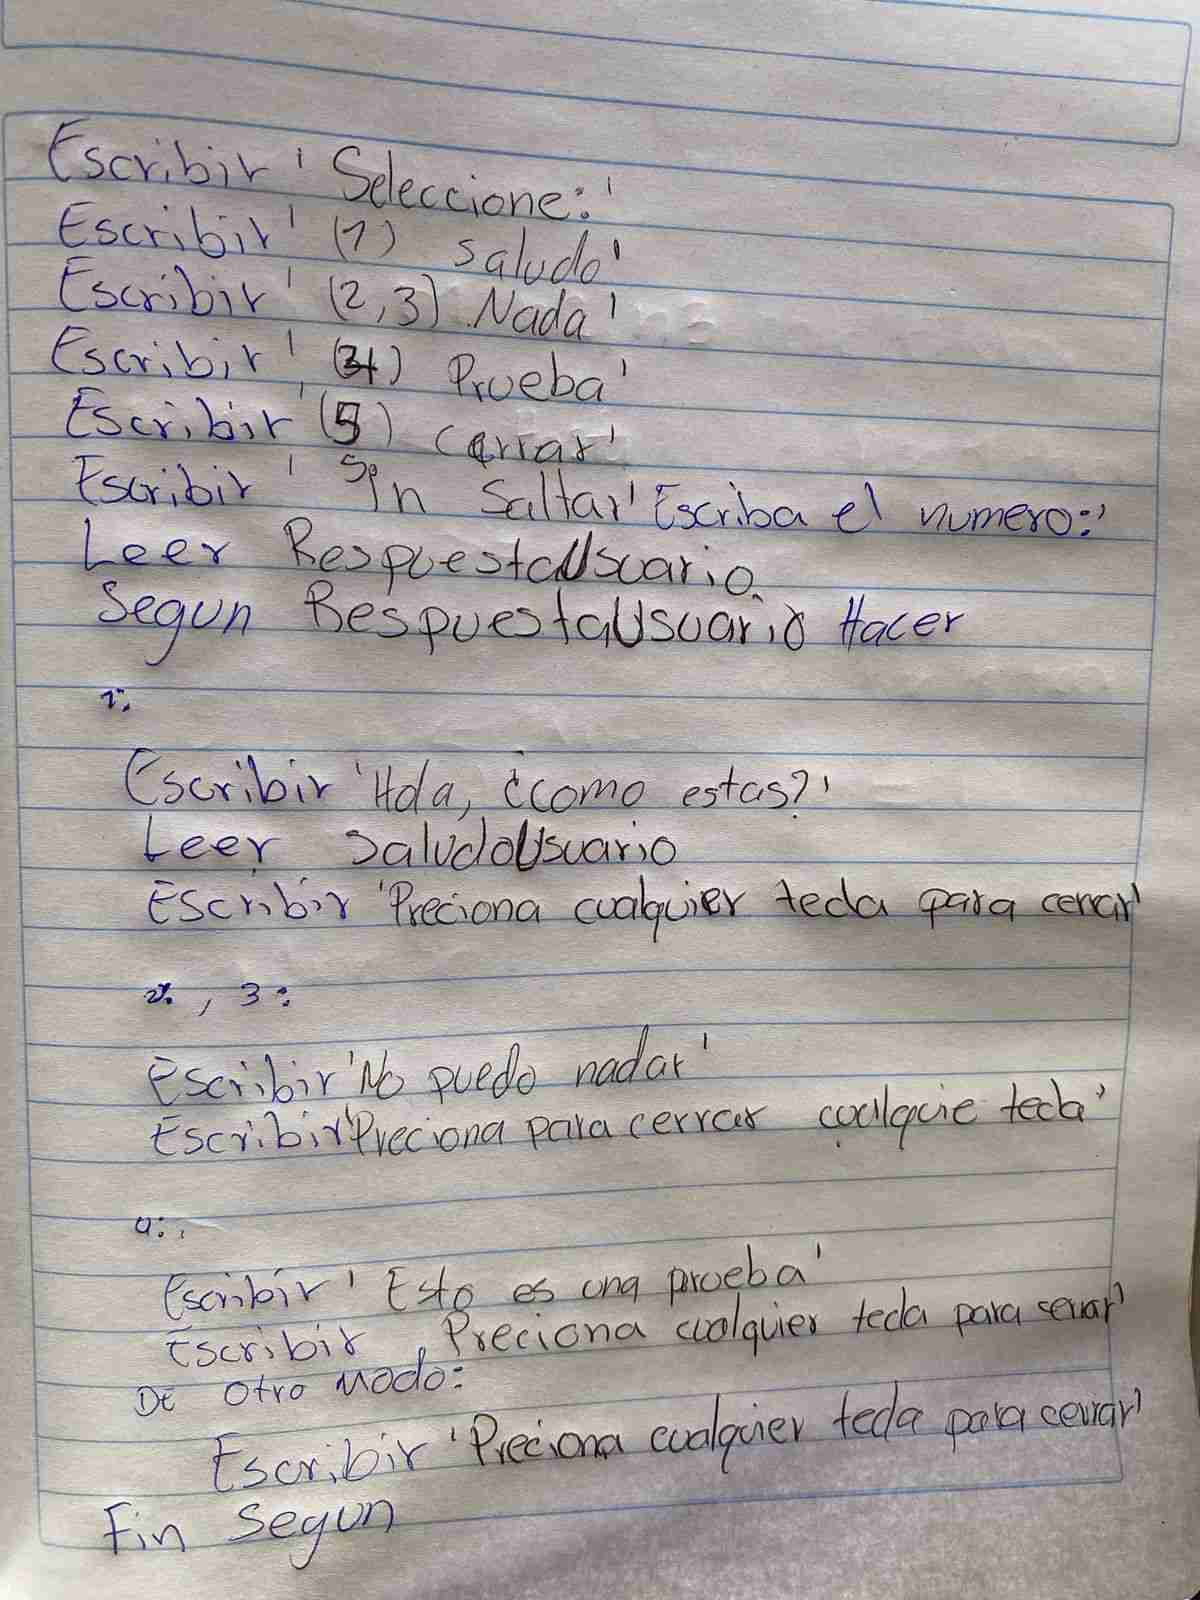 Escribir ' Seleccione:'
Escribir' (1) saludo'
Escribir' (2,3) Nada'
Escribir' (4) Prueba'
Escribir' (5) cerrar'
Escribir' Sin Saltar' Escriba el numero:'
Leer RespuestaUsuario
Segun RespuestaUsuario Hacer
1:
Escribir 'Hola, ¿como estas?'
Leer saludoUsuario
Escribir 'Preciona cualquier tecla para cerrar'
2: , 3:
Escribir 'No puedo nadar'
Escribir 'Preciona para cerrar cualquie tecla'
4:
Escribir' Esto es una prueba'
Escribir 'Preciona cualquier tecla para serrar'
De Otro Modo:
Escribir 'Preciona cualquier tecla para cerrar'
Fin Segun